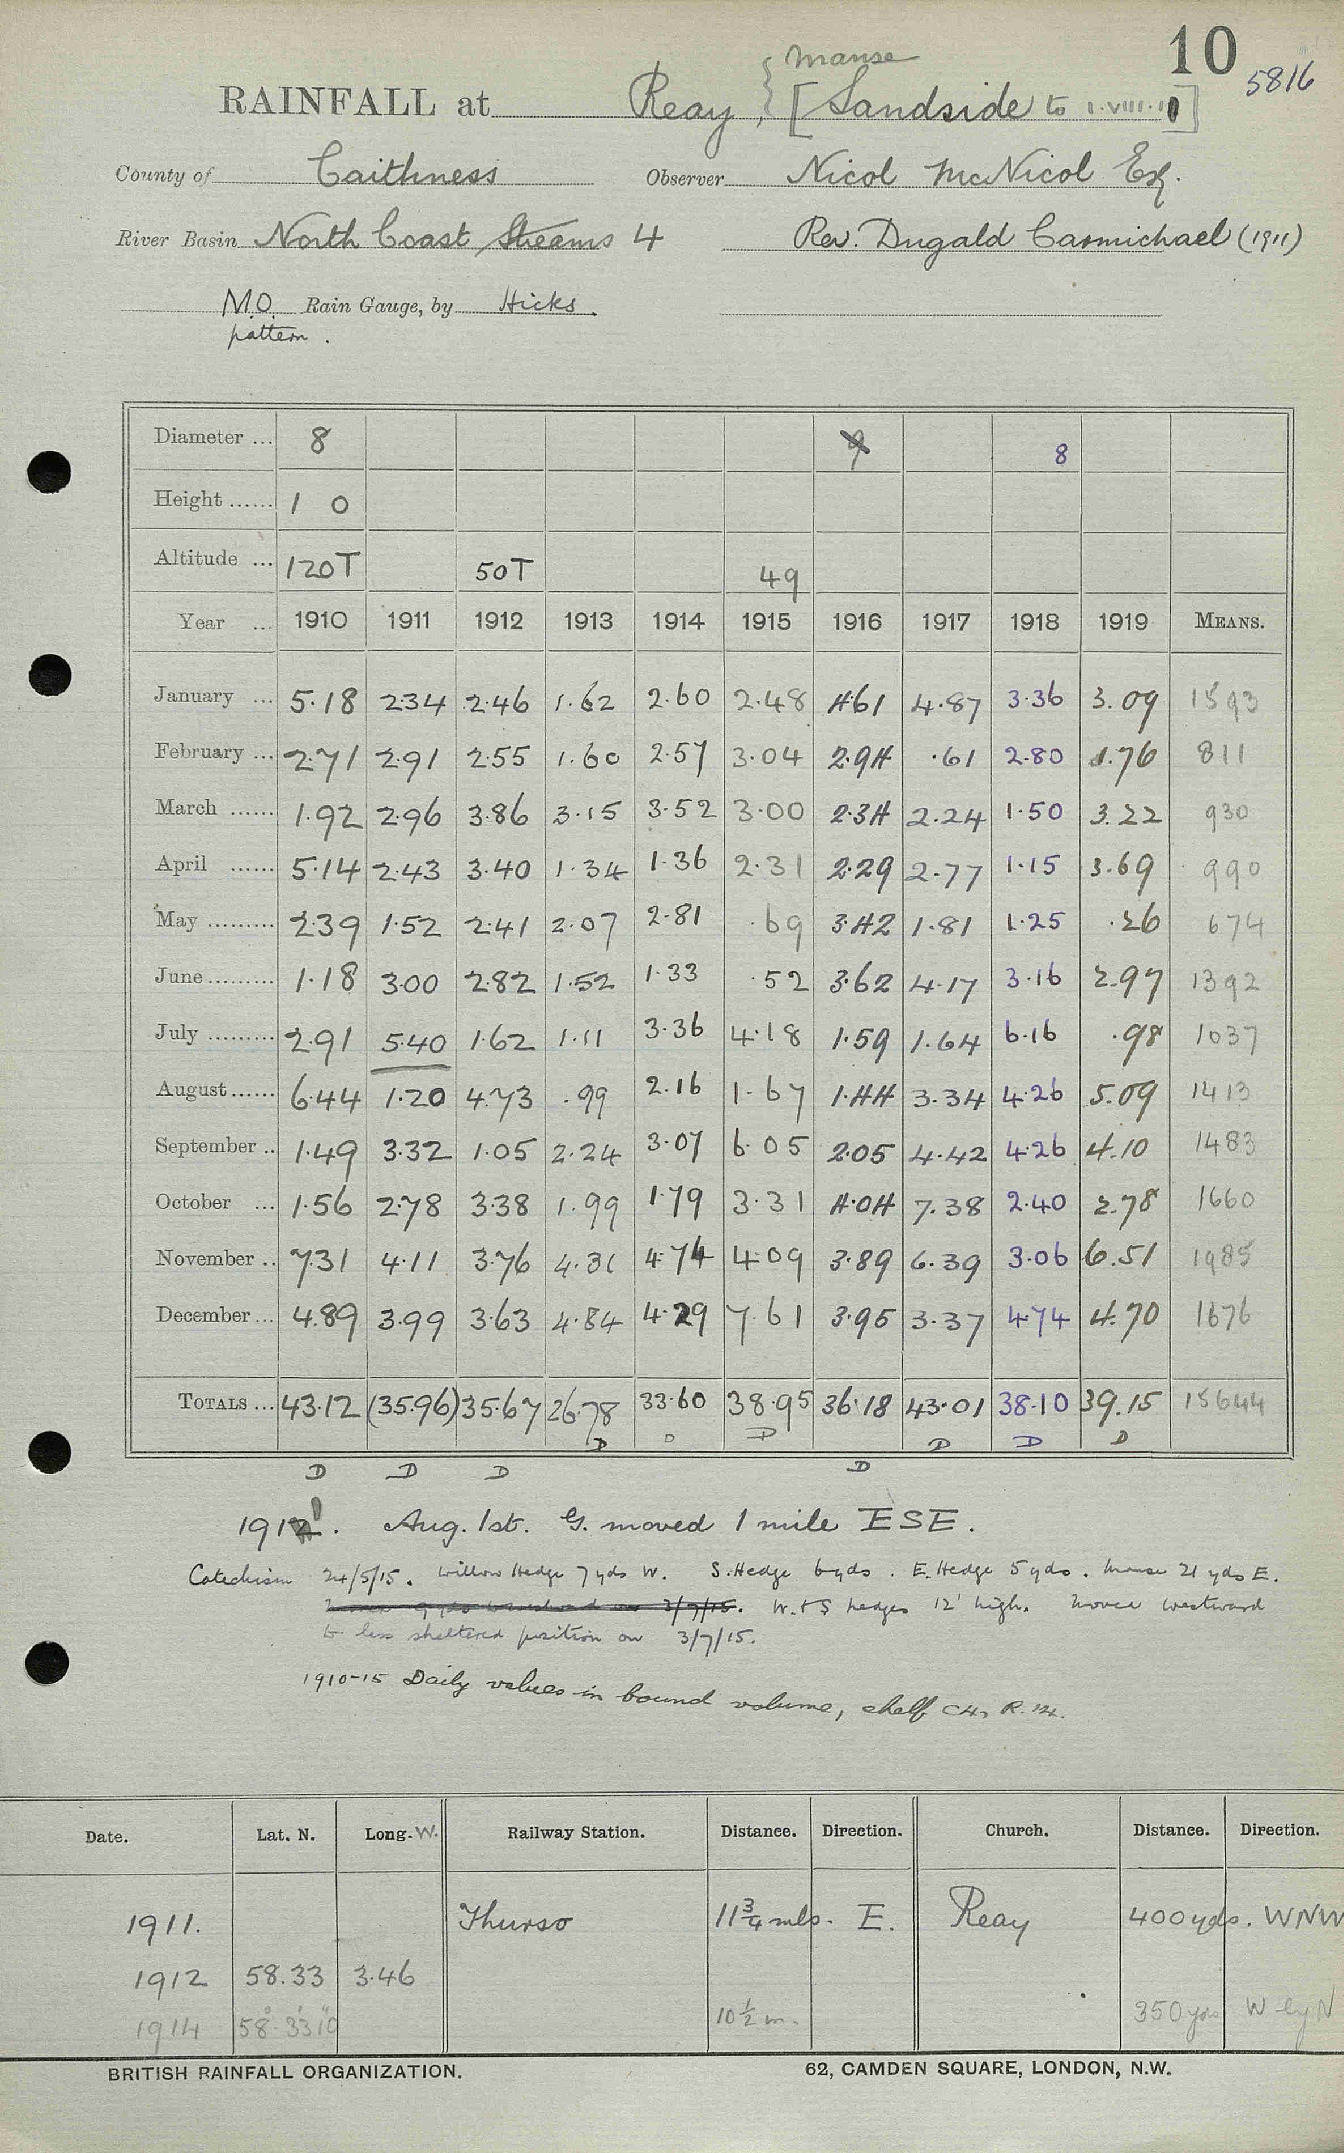 10
5816
Manse
RAINFALL at Reay, { [Sandside to 1.VIII.11]
County of Caithness Observer Nicol McNicol Esq.
River Basin North Coast Streams 4 Rev. Dugald Carmichael (1911)
M.O. Rain Gauge, by Hicks.
pattern.
Diameter ... 8 9 8
Height ...... 1 0
Altitude ... 120T 50T 49
Year ... 1910 1911 1912 1913 1914 1915 1916 1917 1918 1919 MEANS.
January ... 5.18 2.34 2.46 1.62 2.60 2.48 4.61 4.87 3.36 3.09 1593
February ... 2.71 2.91 2.55 1.60 2.57 3.04 2.94 .61 2.80 1.76 811
March ...... 1.92 2.96 3.86 3.15 3.52 3.00 2.34 2.24 1.50 3.22 930
April ...... 5.14 2.43 3.40 1.34 1.36 2.31 2.29 2.77 1.15 3.69 990
May ......... 2.39 1.52 2.41 2.07 2.81 .69 3.42 1.81 1.25 .26 674
June ......... 1.18 3.00 2.82 1.52 1.33 .52 3.62 4.17 3.16 2.97 1392
July ......... 2.91 5.40 1.62 1.11 3.36 4.18 1.59 1.64 6.16 .98 1037
August ...... 6.44 1.20 4.73 .99 2.16 1.67 1.44 3.34 4.26 5.09 1413
September .. 1.49 3.32 1.05 2.24 3.07 6.05 2.05 4.42 4.26 4.10 1483
October ... 1.56 2.78 3.38 1.99 1.79 3.31 4.04 7.38 2.40 2.78 1660
November .. 7.31 4.11 3.76 4.31 4.74 4.09 3.89 6.39 3.06 6.51 1985
December ... 4.89 3.99 3.63 4.84 4.29 7.61 3.95 3.37 4.74 4.70 1676
TOTALS ... 43.12 (35.96) 35.67 26.78 33.60 38.95 36.18 43.01 38.10 39.15 15644
D D D D D D
D D D D
1911. Aug. 1st. G. moved 1 mile ESE.
Catechism 24/5/15. Willow Hedge 7 yds W. S. Hedge 6 yds. E. Hedge 5 yds. House 21 yds E.
3/7/15. W. & S hedges 12' high. Moved westward
to less sheltered position on 3/7/15.
1910-15 Daily values in bound volume, shelf C4, R.14.
Date. Lat. N. Long. W. Railway Station. Distance. Direction. Church. Distance. Direction.
1911. Thurso 11¾ mls. E. Reay 400 yds. WNW
1912 58.33 3.46
1914 58° 33' 10" 10½ m. 350 yds W by N
BRITISH RAINFALL ORGANIZATION. 62, CAMDEN SQUARE, LONDON, N.W.